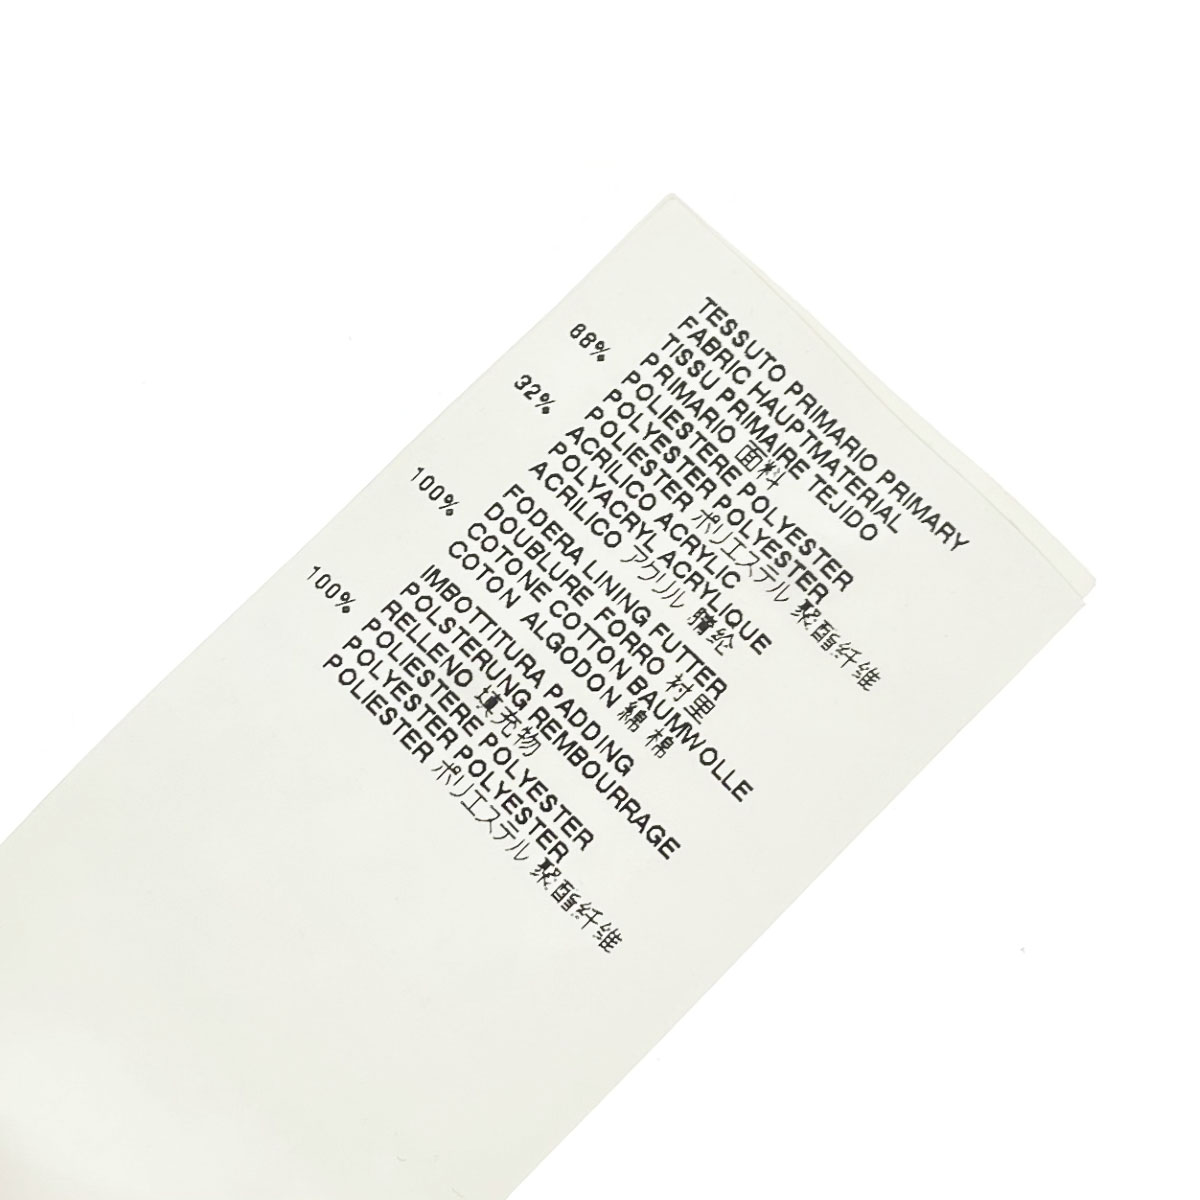 TESSUTO PRIMARIO PRIMARY
FABRIC HAUPTMATERIAL
TISSU PRIMAIRE TEJIDO
PRIMARIO 面料
68% POLIESTERE POLYESTER
POLYESTER POLYESTER
POLIESTER ポリエステル 聚酯纤维
32% ACRILICO ACRYLIC
POLYACRYL ACRYLIQUE
ACRILICO アクリル 腈纶
FODERA LINING FUTTER
DOUBLURE FORRO 衬里
100% COTONE COTTON BAUMWOLLE
COTON ALGODON 綿 棉
IMBOTTITURA PADDING
POLSTERUNG REMBOURRAGE
RELLENO 填充物
100% POLIESTERE POLYESTER
POLYESTER POLYESTER
POLIESTER ポリエステル 聚酯纤维